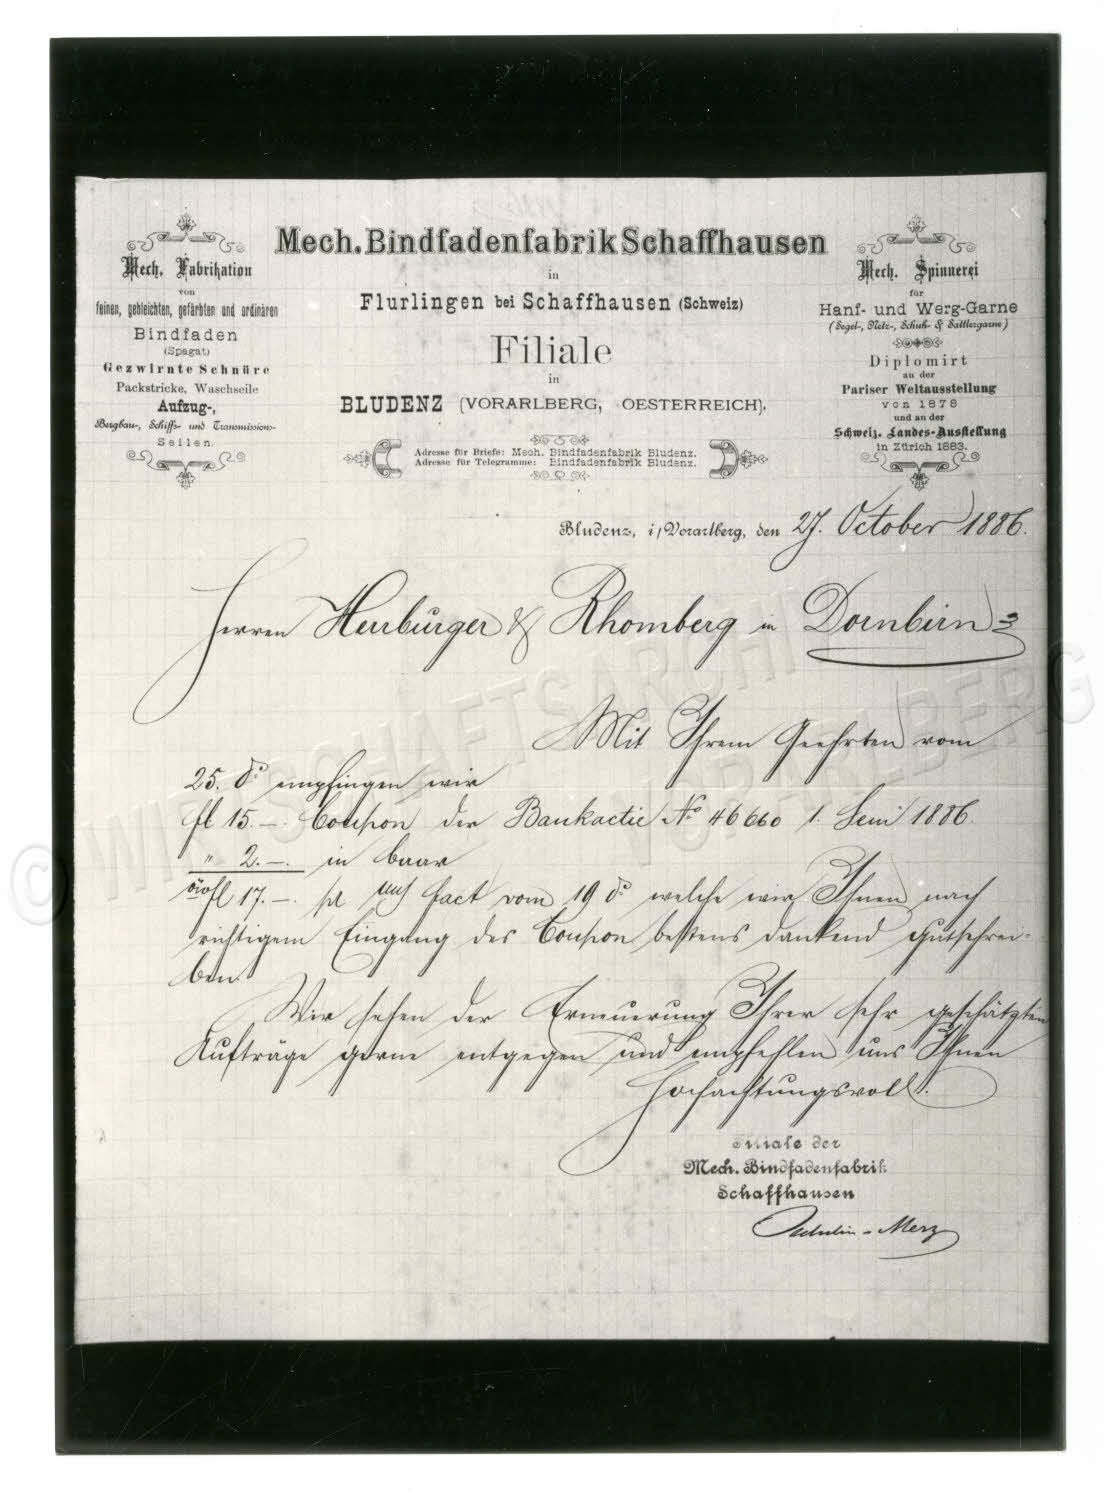 Mech. Bindfadenfabrik Schaffhausen
in
Flurlingen bei Schaffhausen (Schweiz)
Filiale
in
BLUDENZ (VORARLBERG, OESTERREICH).
Adresse für Briefe: Mech. Bindfadenfabrik Bludenz.
Adresse für Telegramme: Bindfadenfabrik Bludenz.
Mech. Fabrikation
von
feinen, gebleichten, gefärbten und ordinären
Bindfaden
(Spagat)
Gezwirnte Schnüre
Packstricke, Waschseile
Aufzug-,
Bergbau-, Schiffs- und Transmissions-
Seilen.
Mech. Spinnerei
für
Hanf- und Werg-Garne
(Segel-, Netz-, Schuh- & Sattlergarne)
Diplomirt
an der
Pariser Weltausstellung
von 1878
und an der
Schweiz. Landes-Ausstellung
in Zürich 1883.
Bludenz, i/Vorarlberg, den 27. October 1886.
Herren Herrburger & Rhomberg in Dornbirn
Mit Ihrem Geehrten vom
25. ds empfingen wir
fl 15.-. Coupon der Bankactie No 46660 1. Semi 1886.
" 2.-. in baar
öw fl 17.-. pr fact vom 19 ds welche wir Ihnen nach
richtigem Eingang des Coupon bestens dankend gutschrei-
ben.
Wir sehen der Erneuerung Ihrer sehr geschätzten
Aufträge gerne entgegen und empfehlen uns Ihnen
Hochachtungsvoll.
Filiale der
Mech. Bindfadenfabrik
Schaffhausen
Merz
© WIRTSCHAFTSARCHIV
VORARLBERG